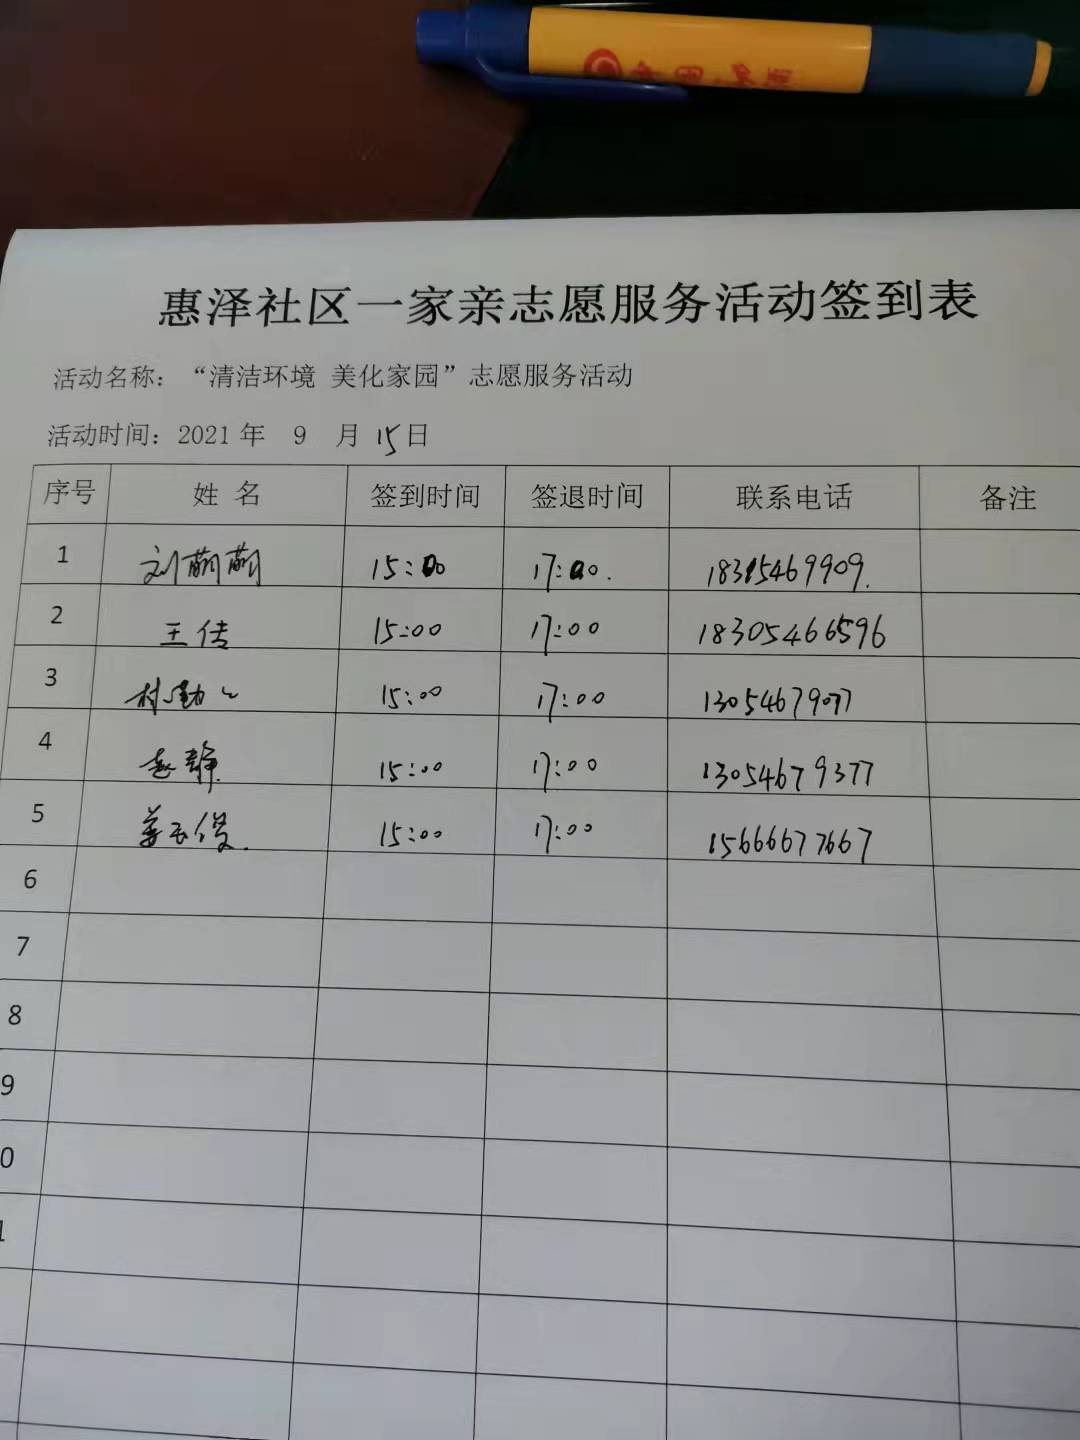 中国
惠泽社区一家亲志愿服务活动签到表
活动名称：“清洁环境 美化家园”志愿服务活动
活动时间：2021年 9 月 15日
序号 姓 名 签到时间 签退时间 联系电话 备注
1 刘萌萌 15:00 17:00. 18315469909.
2 王佳 15:00 17:00 18305466596
3 15:00 17:00 13054679077
4 赵静 15:00 17:00 13054679377
5 姜玉俊. 15:00 17:00 15666677667
6
7
8
9
0
1